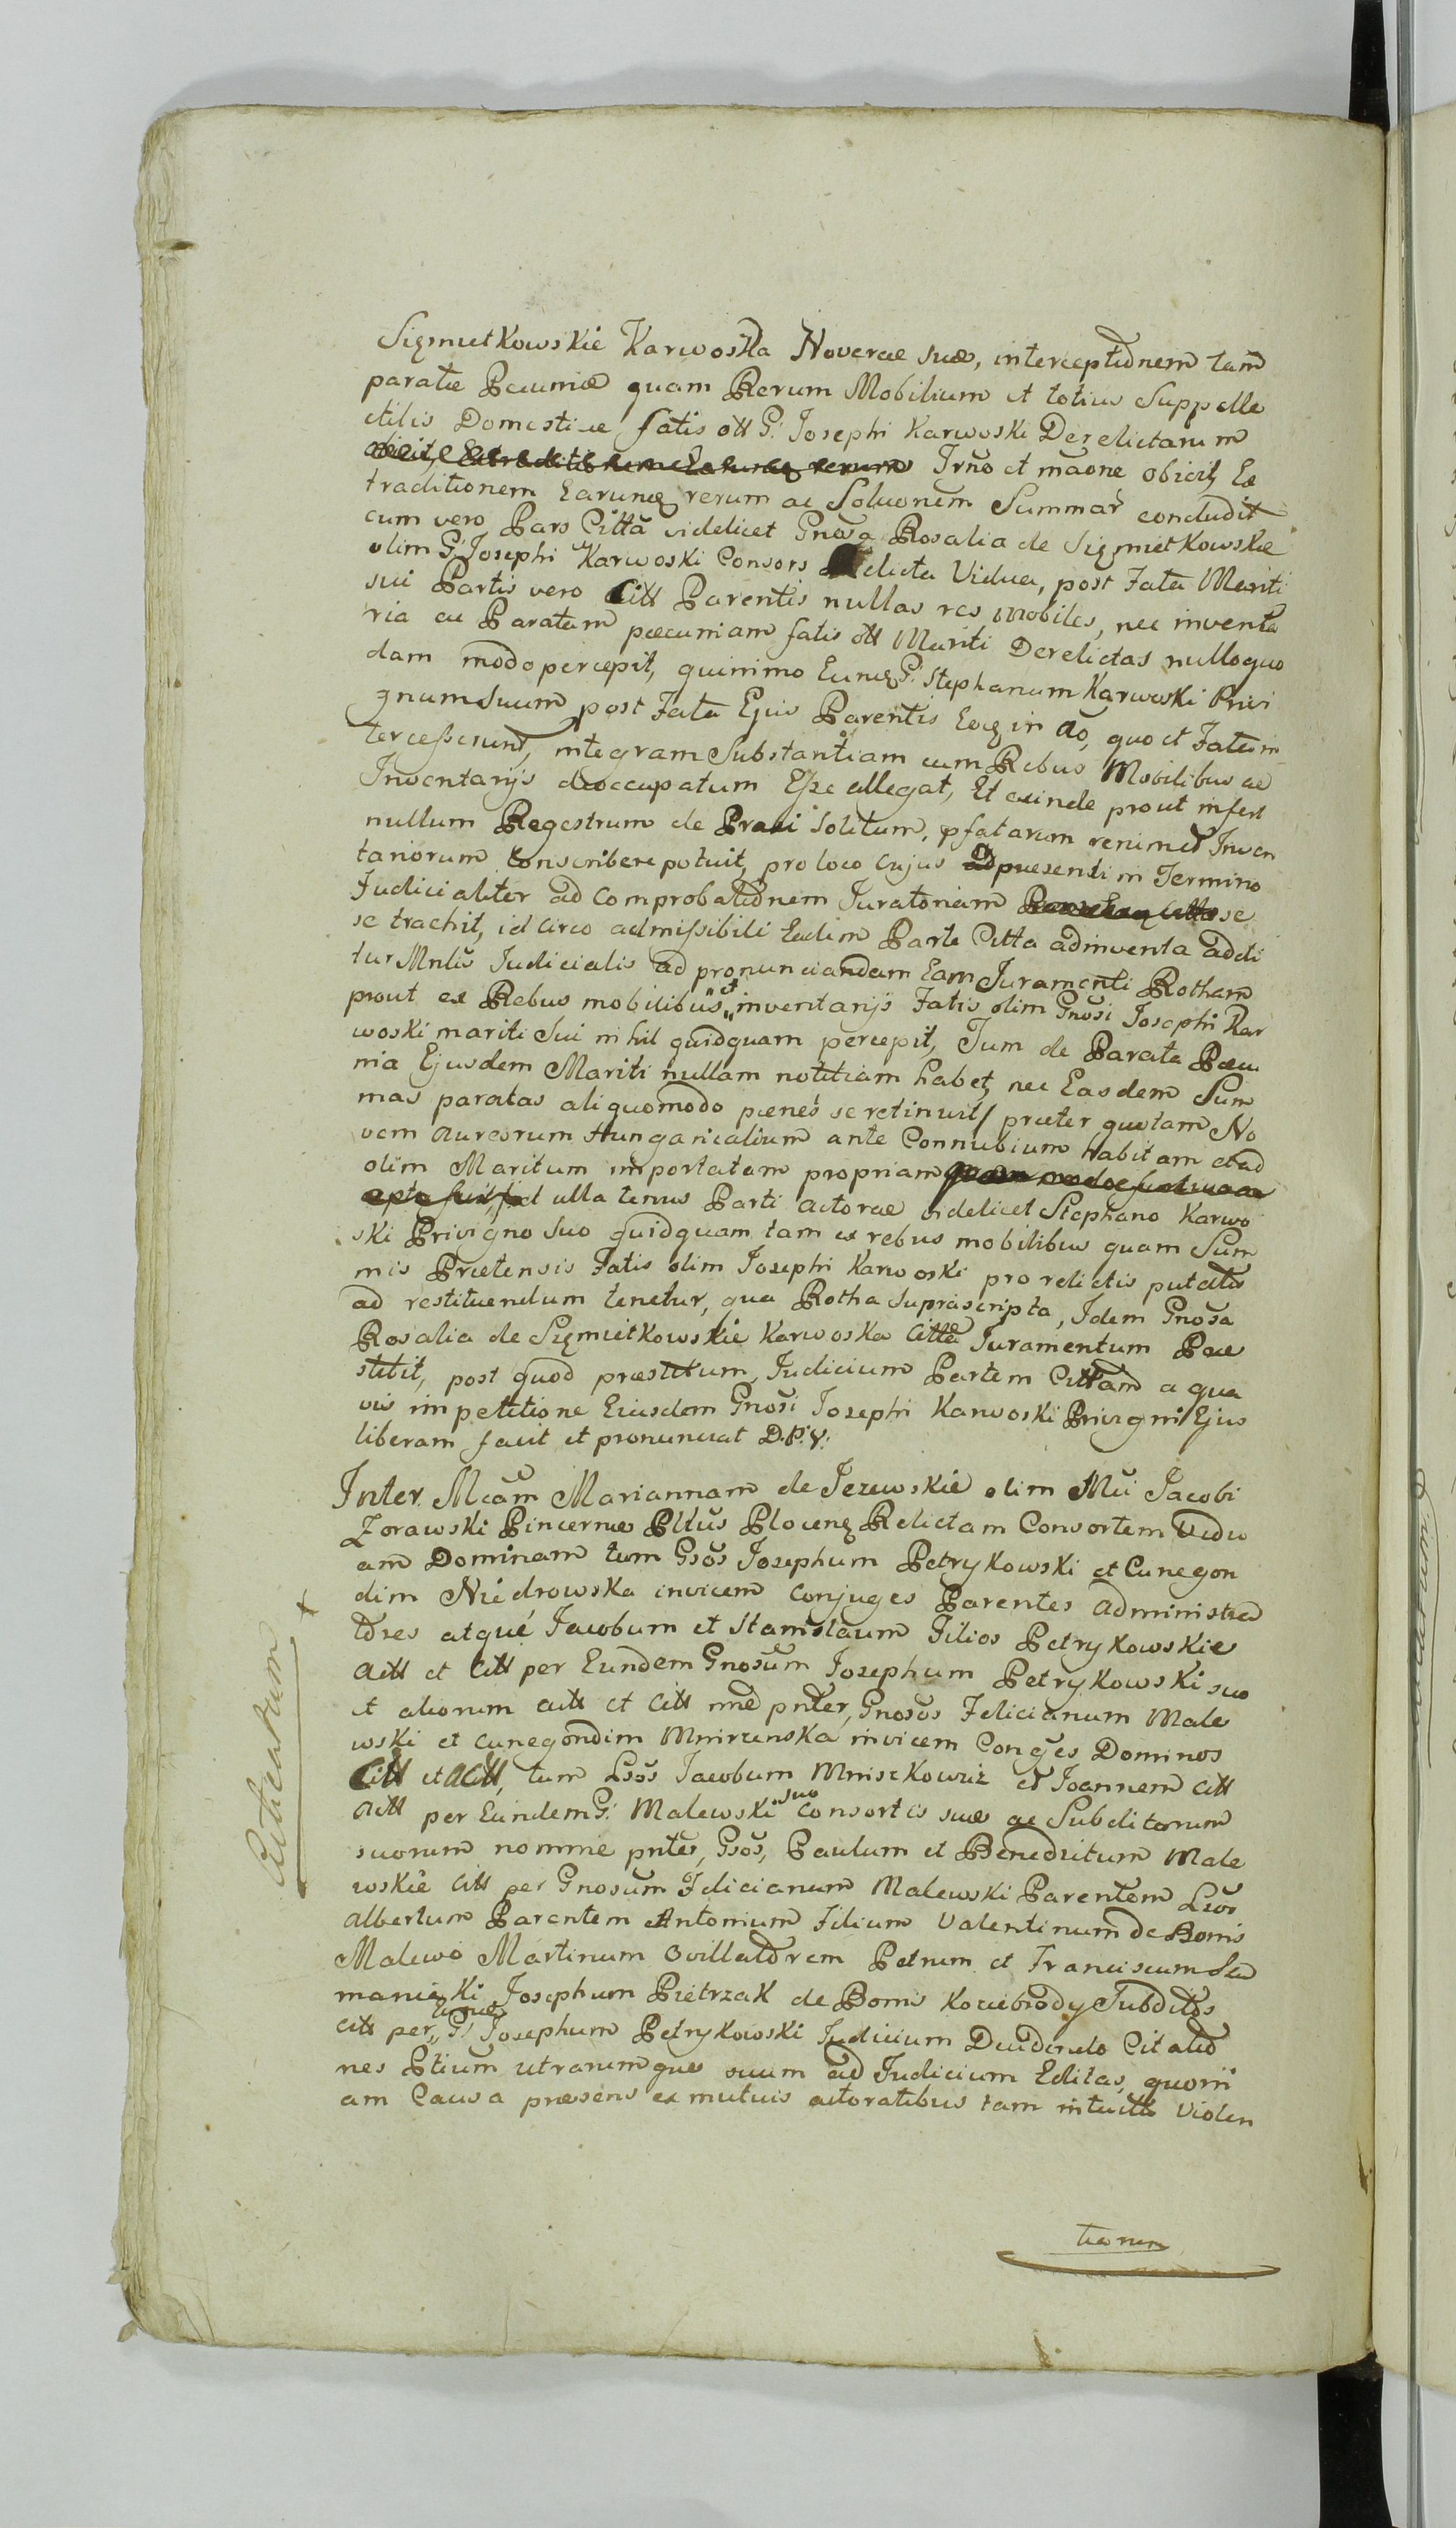 Sigmutkowskie Karwoska Novercæ suæ, interceptionem tam
paratæ Pecuniæ quam Rerum Mobilium et totius Suppelle
ctilis Domesticæ fatis ott G. Josephi Karwoski Derelictarum
Irno et maone obicit, Ex
traditionem Earumq rerum ac Soluonem Summar concludit
cum vero Pars Citta videlicet Gnosa Rosalia de Sigmietkowskie
olim G. Josephi Karwoski Consors Relicta Vidua, post Fata Mariti
sui Partis vero Citt Parentis nullas res mobiles, nec inventa
ria ac Paratam pæcuniam fatis ott Mariti Derelictas nulloquo
dam modo percepit, quinimo Eumq G. Stephanum Karwoski Privi
gnum Suum post Fata Ejus Parentis Eoq in ao, quo et Fata in
tercesserunt, integram Substantiam cum Rebus Mobilibus ac
Inventarijs deoccupatum Esse allegat, Et exinde prout infert
nullum Regestrum de Praxi Solitum, pfatarum rerum et Inven
tariorum Conscribere potuit, pro loco cujus ad præsenti in Termino
Judicialiter ad Comprobationem Juratoriam se
se trachit, id circo admissibili Eadim Parte Citta adinventa addi
tur Mnlis Judicialis ad pronunciandam Eam Juramenti Rotham
prout ex Rebus mobilibus "et" inventarijs Fatis olim Gnosi Josephi Kar
woski mariti Sui nihil quidquam percepit, Tum de Parata Pæcu
nia Ejusdem Mariti nullam notitiam habet, nec Easdem Sum
mas paratas aliquomodo pænes se retinuit præter quotam No
vem Aureorum Hungaricalium ante Connubium habitam et ad
olim Maritum importatam propriam
et ulla tenus Parti Actoræ videlicet Stephano Karwo
ski Privigno Suo quidquam tam ex rebus mobilibus quam Sum
mis Prætensis Fatis olim Josephi Karwoski pro relictis putatis
ad restituendum tenetur, qua Rotha Supra scripta, Idem Gnosa
Rosalia de Sigmietkowskie Karwoska Citta Juramentum Præ
stitit, post quod præstitum, Judicium Partem Cittam a qua
vis impetitione Eiusdem Gnosi Josephi Karwoski Privigni Ejus
liberam facit et pronunciat D.P.V.
Inter Mcam Mariannam de Jezewskie olim Mci Jacobi
Zorawski Pincernæ Pltus Plocenq Relictam Consortem Vidu
am Dominam tum Gsos Josephum Petrykowski et Cunegon
dim Niedrowska invicem Conjuges Parentes Administra
tores atque Jacobum et Stanislaum Filios Petrykowskie
Actt et Citt per Eundem Gnosum Josephum Petrykowski suo
et aliorum actt et Citt nne pnter, Gnosos Felicianum Male
wski et Cunegondim Mnirzenska invicem Conges Dominos
Citt et Actt, tum Lsos Jacobum Mniszkowicz et Joannem Citt
Actt per Eundem G. Malewski "suo Consortis suæ ac Subditorum
suorum nomine pntes, Gsos, Paulum et Benedictum Male
wskie Citt per Gnosum Felicianum Malewski Parentem Lsos
Albertum Parentem Antonium Filium Valentinum de Bonis
Malewo Martinum Ovillatorem Petrum et Franciscum Se
manieki Josephum Pietrzak de Bonis Kozebrody Subditos
Citt per "eunde G. Josephum Petrykowski Judicium Ducendo Citatio
nes Ptium utrarumque suum ad Judicium Editas, quoni
am Causa præsens ex mutuis actoratibus tam intuitu Violen
tiarum